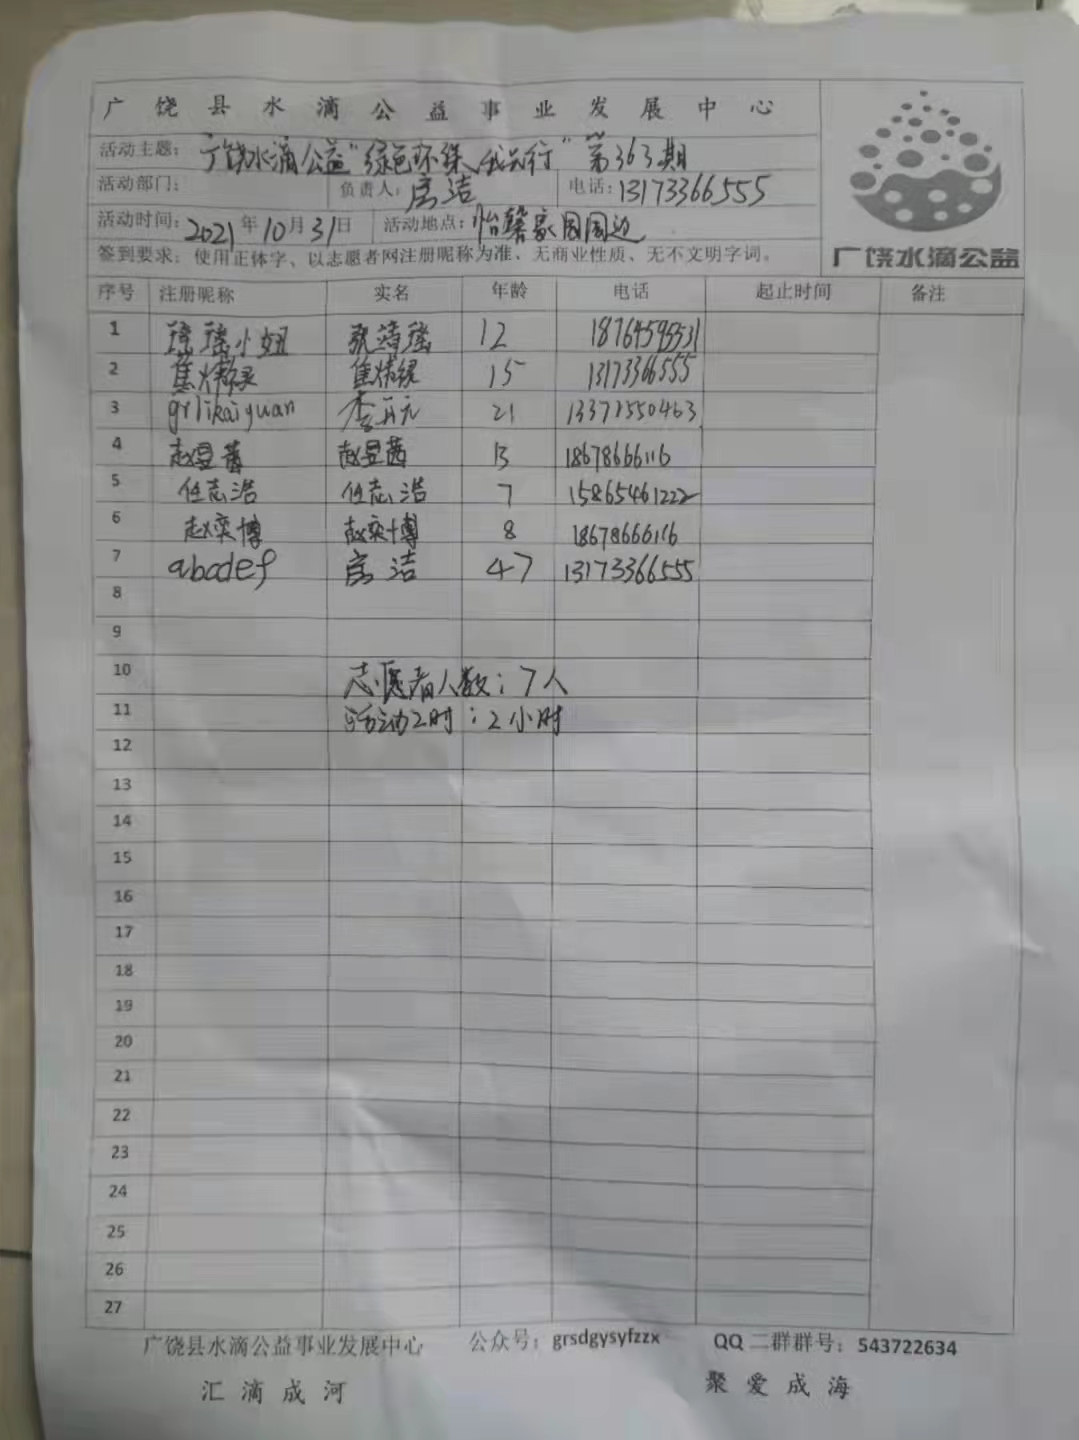 广饶县水滴公益事业发展中心
活动主题：广饶水滴公益“绿色环保、我先行”第363期
活动部门： 负责人：房洁 电话：13173366555
活动时间：2021年10月31日 活动地点：怡馨家园周边
签到要求：使用正体字、以志愿者网注册昵称为准、无商业性质、无不文明字词。
广饶水滴公益
序号 注册昵称 实名 年龄 电话 起止时间 备注
1 瑶瑶小妞 张靖瑶 12
2 焦炜禄 焦炜禄 15 13173366555
3 grlikaiyuan 李开元 21 13371550463
4 赵昱茜 赵昱茜 13 18678666116
5 任志浩 任志浩 7 15865461222
6 赵奕博 赵奕博 8 18678666116
7 abcdef 房洁 47 13173366555
8
9
10 志愿者人数：7人
11 活动工时：2小时
12
13
14
15
16
17
18
19
20
21
22
23
24
25
26
27
广饶县水滴公益事业发展中心 公众号：grsdgysyfzzx QQ二群群号：543722634
汇滴成河 聚爱成海